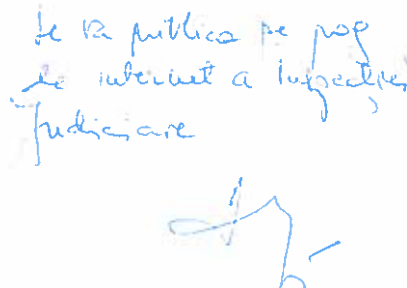 Se va publica pe pag
de internet a Inspecției
Judiciare